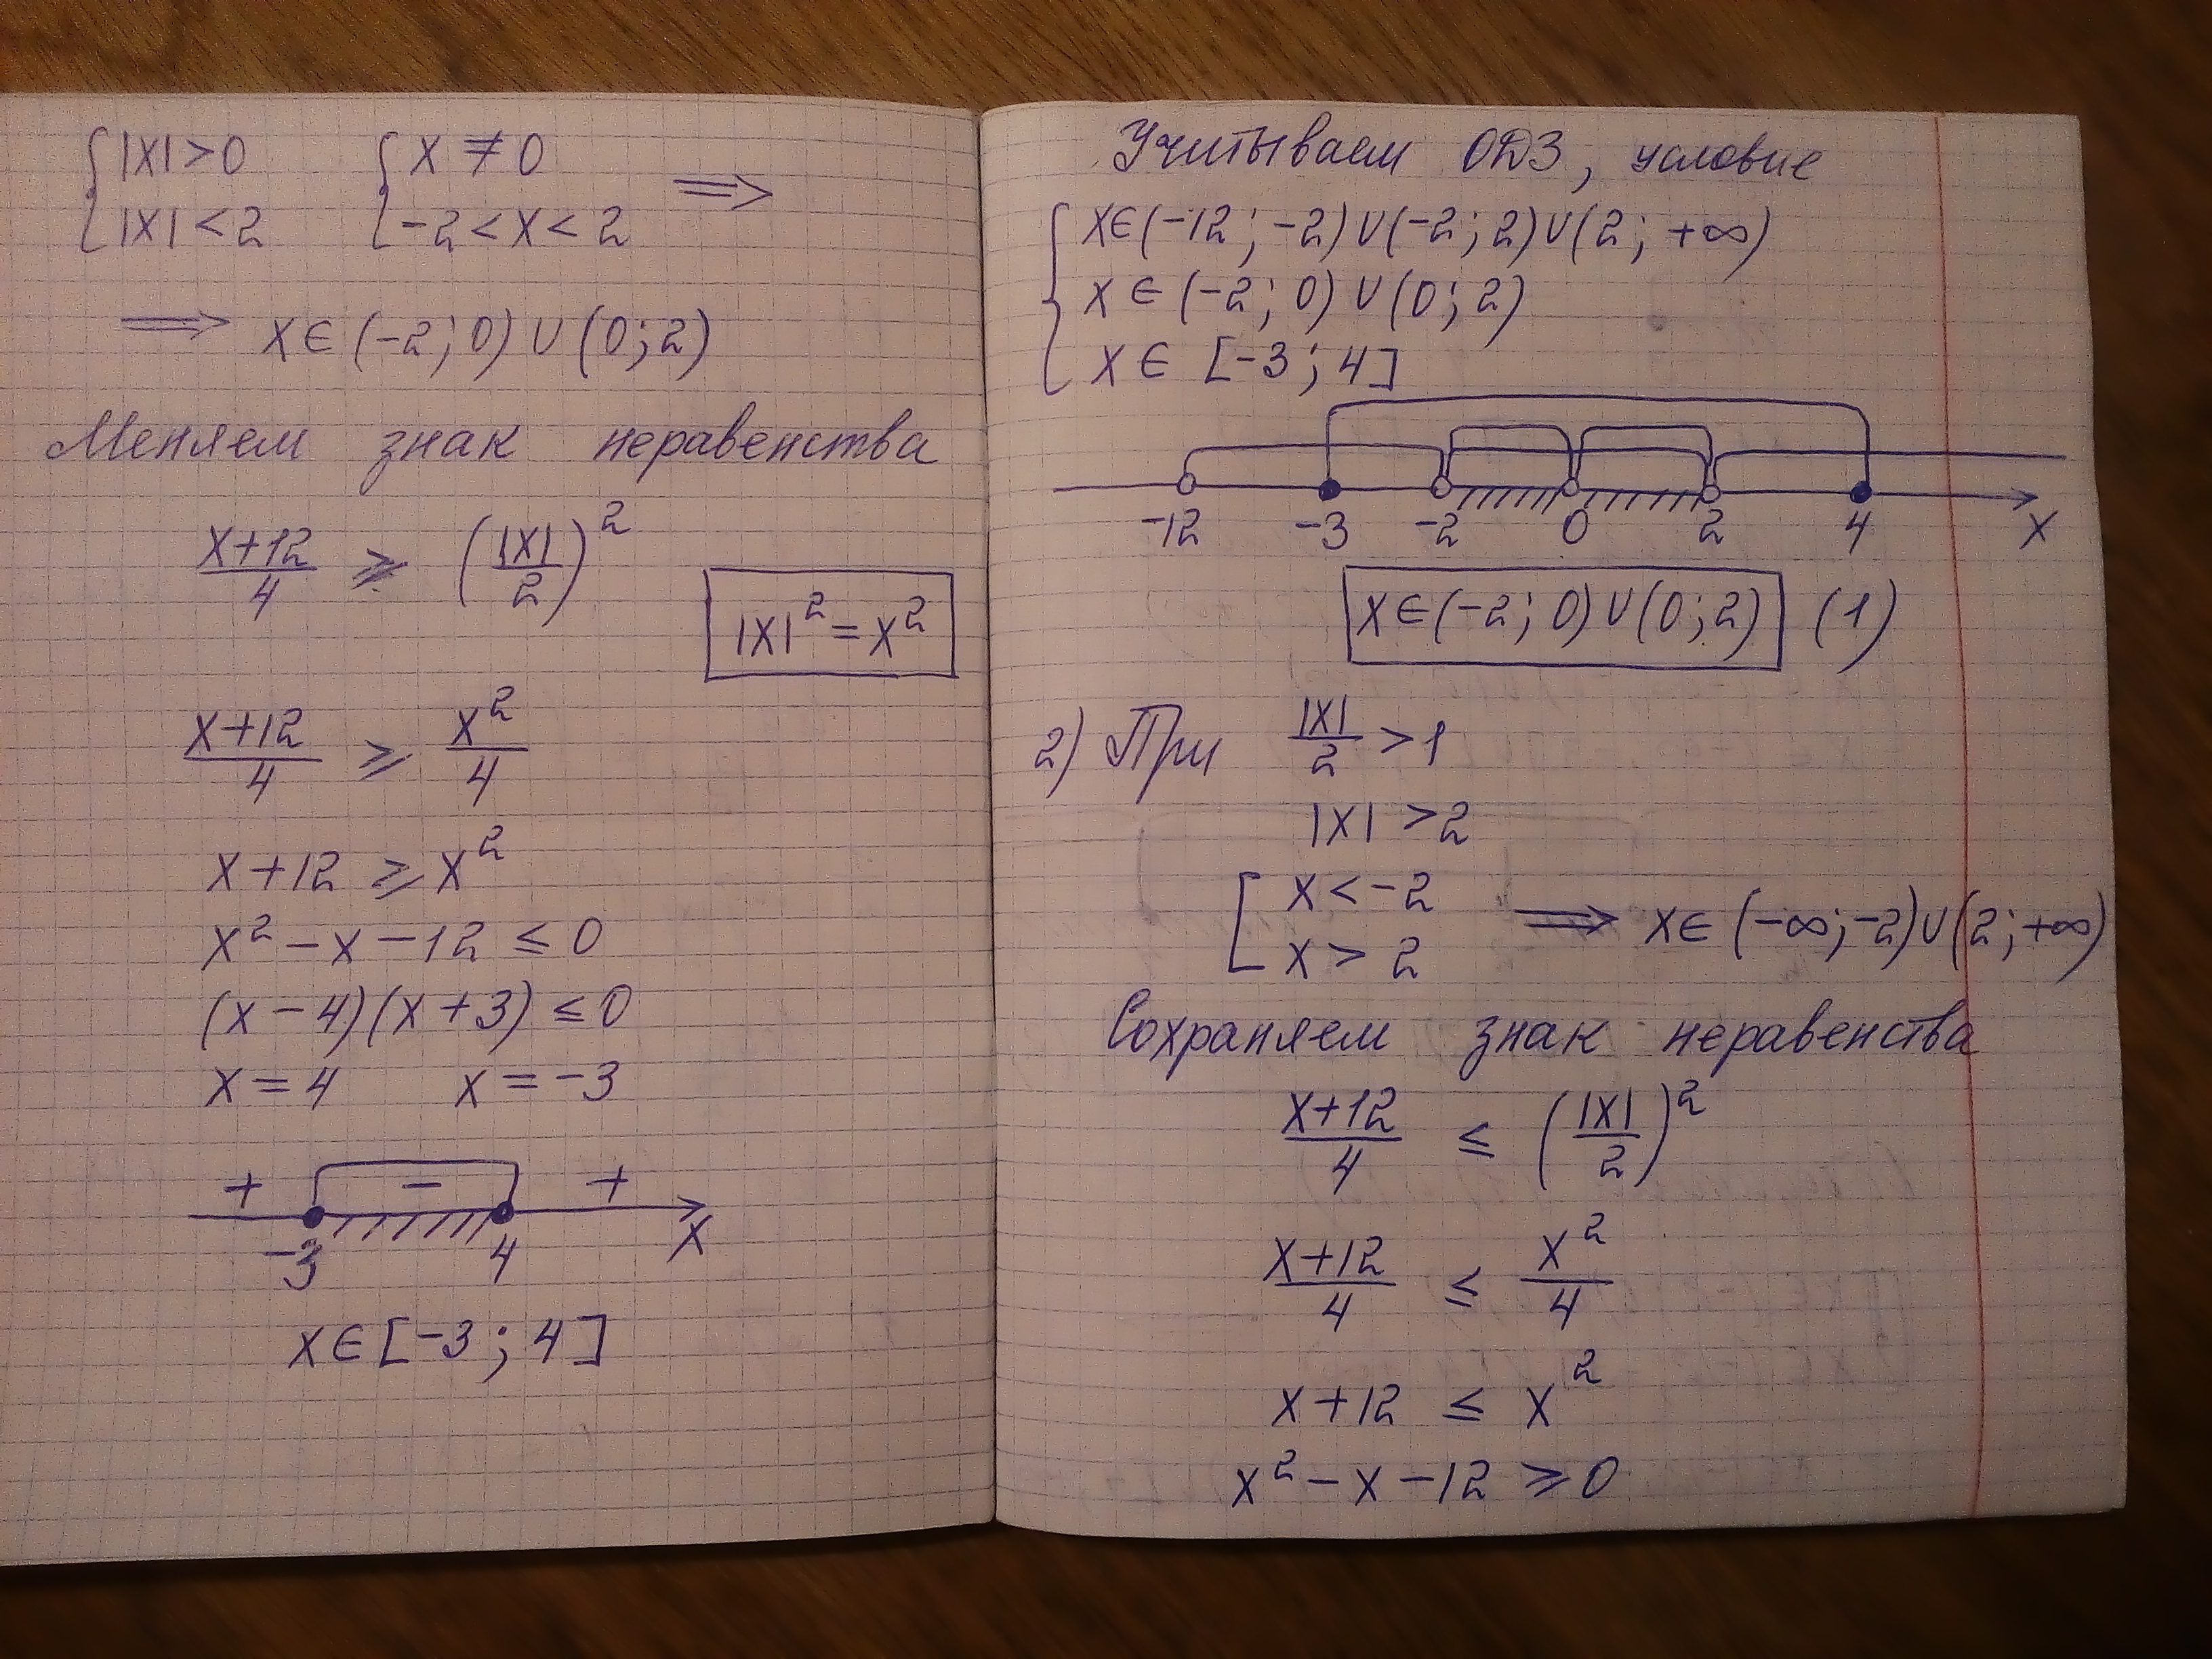 {|x|>0 {x ≠ 0
{|x|<2 {-2<x<2 ⟹
⟹ x∈(-2;0)∪(0;2)
Меняем знак неравенства
(x+12)/4 ⩾ (|x|/2)²
|x|²=x²
(x+12)/4 ⩾ x²/4
x+12 ⩾ x²
x²-x-12 ≤ 0
(x-4)(x+3) ≤ 0
x=4 x=-3
+ - +
-3 4 x
x∈[-3;4]
Учитываем ОДЗ, условие
{x∈(-12;-2)∪(-2;2)∪(2;+∞)
{x∈(-2;0)∪(0;2)
{x∈[-3;4]
-12 -3 -2 0 2 4 x
x∈(-2;0)∪(0;2) (1)
2) При |x|/2 >1
|x|>2
[x<-2
[x>2 ⟹ x∈(-∞;-2)∪(2;+∞)
Сохраняем знак неравенства
(x+12)/4 ≤ (|x|/2)²
(x+12)/4 ≤ x²/4
x+12 ≤ x²
x²-x-12 ⩾ 0